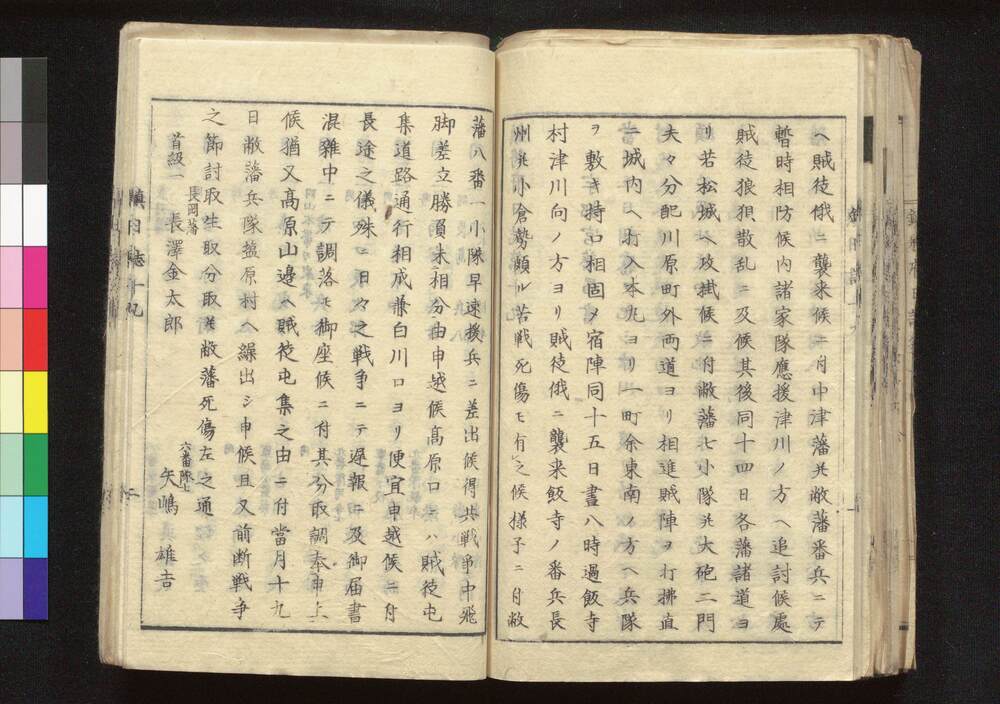 ヘ賊徒俄ニ襲来候ニ付中津藩并敝藩番兵ニテ
暫時相防候内諸家隊應援津川ノ方ヘ追討候處
賊徒狼狽散乱ニ及候其後同十四日各藩諸道ヨ
リ若松城ヘ攻掛候ニ付敝藩七小隊并大砲二門
夫々分配川原町外両道ヨリ相進賊陣ヲ打拂直
ニ城内ヘ打入本丸ヨリ一町余東南ノ方ヘ兵隊
ヲ敷き持口相固メ宿陣同十五日晝八時過飯寺
村津川向ノ方ヨリ賊徒俄ニ襲来飯寺ノ番兵長
州并小倉勢頗ル苦戦死傷モ有之候様子ニ付敝
藩八番一小隊早速援兵ニ差出候得共戦争中飛
脚差立勝負未相分由申越候高原口ヘハ賊徒屯
集道路通行相成兼白川口ヨリ便宜申越候ニ付
長途之儀殊ニ日々之戦争ニテ遅報ニ及御届書
混雑中ニテ調落モ御座候ニ付其分取調奉申上
候猶又高原山邊ヘ賊徒屯集之由ニ付當月十九
日敝藩兵隊塩原村ヘ繰出シ申候且又前断戦争
之節討取生取分取并敝藩死傷左之通
首級一 長岡藩 長澤金太郎
六番隊士 矢嶋雄吉
鎮日誌十九